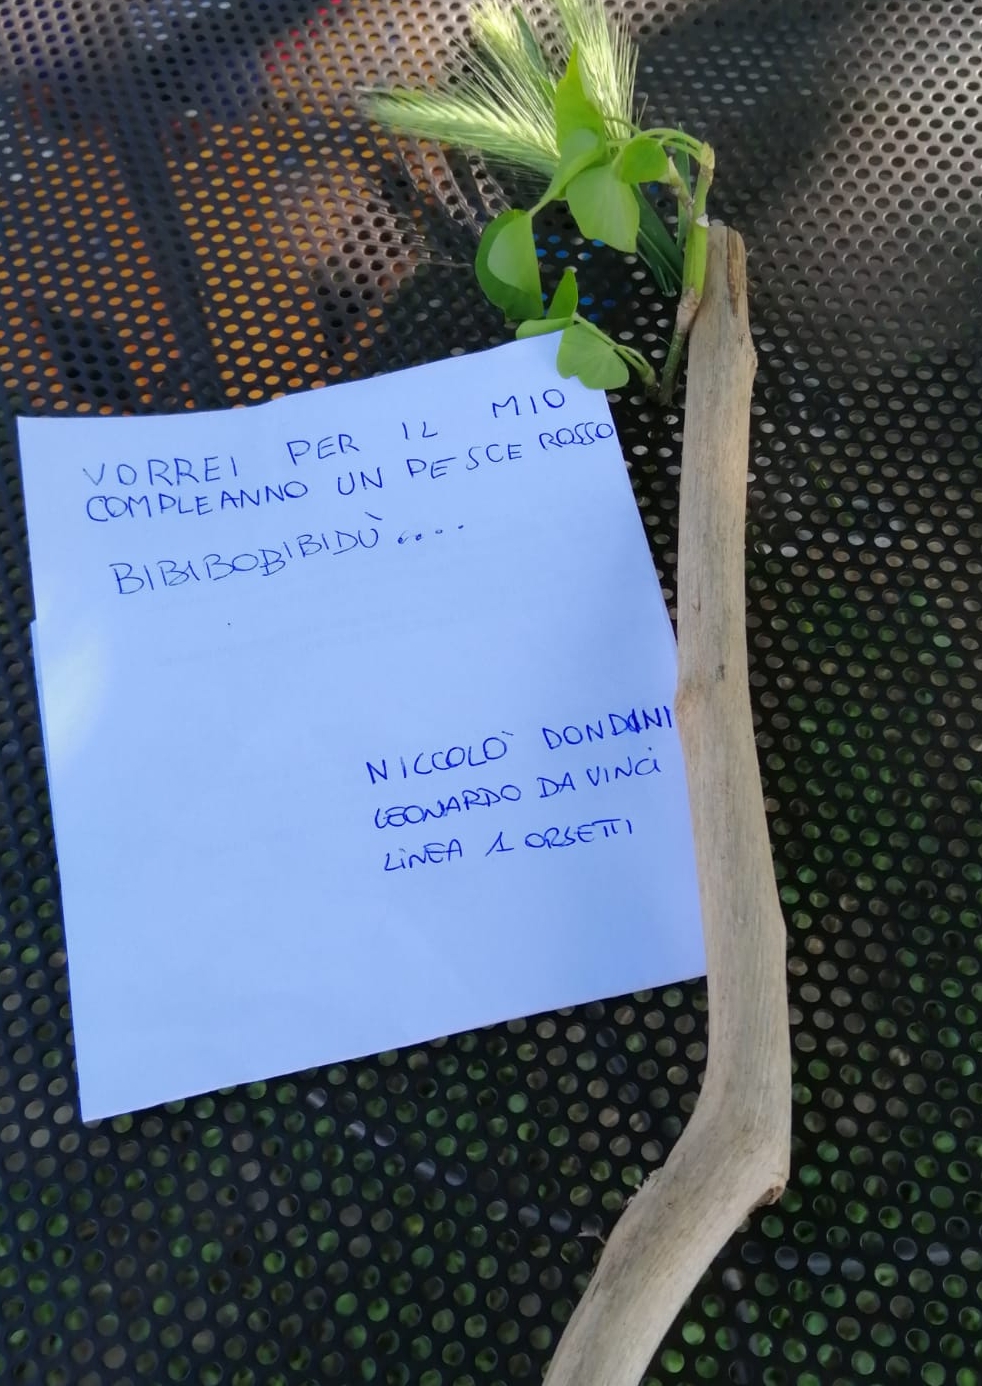 VORREI PER IL MIO
COMPLEANNO UN PESCE ROSSO
BIBIBOBIBIDÙ....
NICCOLÒ DONDINI
LEONARDO DA VINCi
LiNEA 1 ORSETTI